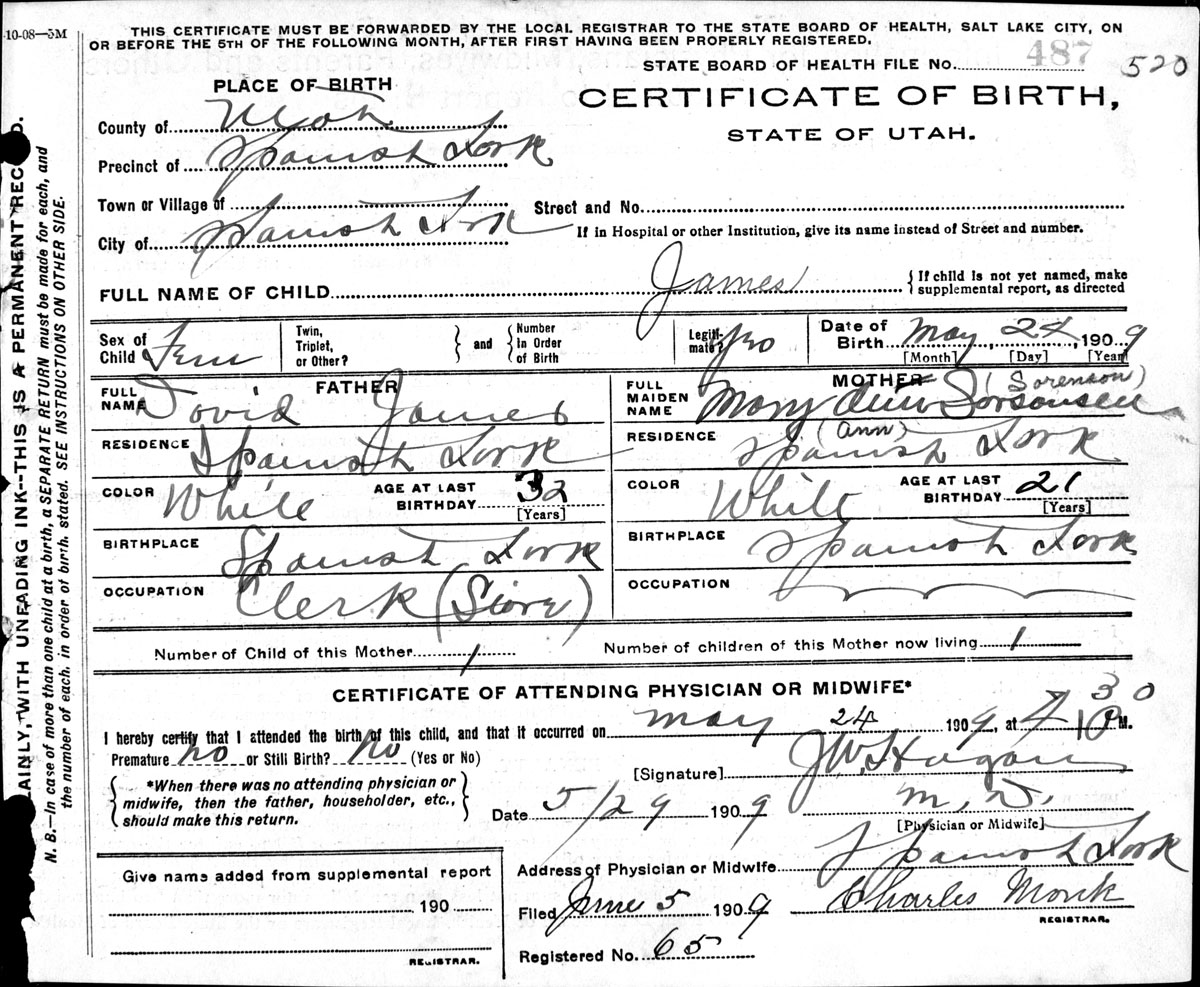 10-08—5M
THIS CERTIFICATE MUST BE FORWARDED BY THE LOCAL REGISTRAR TO THE STATE BOARD OF HEALTH, SALT LAKE CITY, ON
OR BEFORE THE 5TH OF THE FOLLOWING MONTH, AFTER FIRST HAVING BEEN PROPERLY REGISTERED.
STATE BOARD OF HEALTH FILE No. 487 520
PLACE OF BIRTH
CERTIFICATE OF BIRTH,
STATE OF UTAH.
County of Utah
Precinct of Spanish Fork
Town or Village of
Street and No.
City of Spanish Fork
If in Hospital or other Institution, give its name instead of Street and number.
FULL NAME OF CHILD James
{If child is not yet named, make
supplemental report, as directed
Sex of Child Fem
Twin, Triplet, or Other?
and
Number In Order of Birth
Legitimate? Yes
Date of Birth May, 24, 1909
[Month] [Day] [Year]
FATHER
FULL NAME David James
RESIDENCE Spanish Fork
COLOR White AGE AT LAST BIRTHDAY 32
[Years]
BIRTHPLACE Spanish Fork
OCCUPATION Clerk (Store)
MOTHER
(Sorenson)
FULL MAIDEN NAME Mary Ann Sorsonsen
(Ann)
RESIDENCE Spanish Fork
COLOR White AGE AT LAST BIRTHDAY 21
[Years]
BIRTHPLACE Spanish Fork
OCCUPATION
Number of Child of this Mother 1
Number of children of this Mother now living 1
CERTIFICATE OF ATTENDING PHYSICIAN OR MIDWIFE*
I hereby certify that I attended the birth of this child, and that it occurred on May 24 1909, at 4 30 P M.
Premature No or Still Birth? No (Yes or No)
[Signature] J.W. Hagan
*When there was no attending physician or
midwife, then the father, householder, etc.,
should make this return.
Date 5/29 1909 M.D.
[Physician or Midwife]
Give name added from supplemental report
190
REGISTRAR.
Address of Physician or Midwife Spanish Fork
Filed June 5 1909 Charles Monk
REGISTRAR.
Registered No. 65
AINLY, WITH UNFADING INK--THIS IS A PERMANENT REC D.
N. B.—In case of more than one child at a birth, a SEPARATE RETURN must be made for each, and
the number of each, in order of birth, stated. SEE INSTRUCTIONS ON OTHER SIDE.